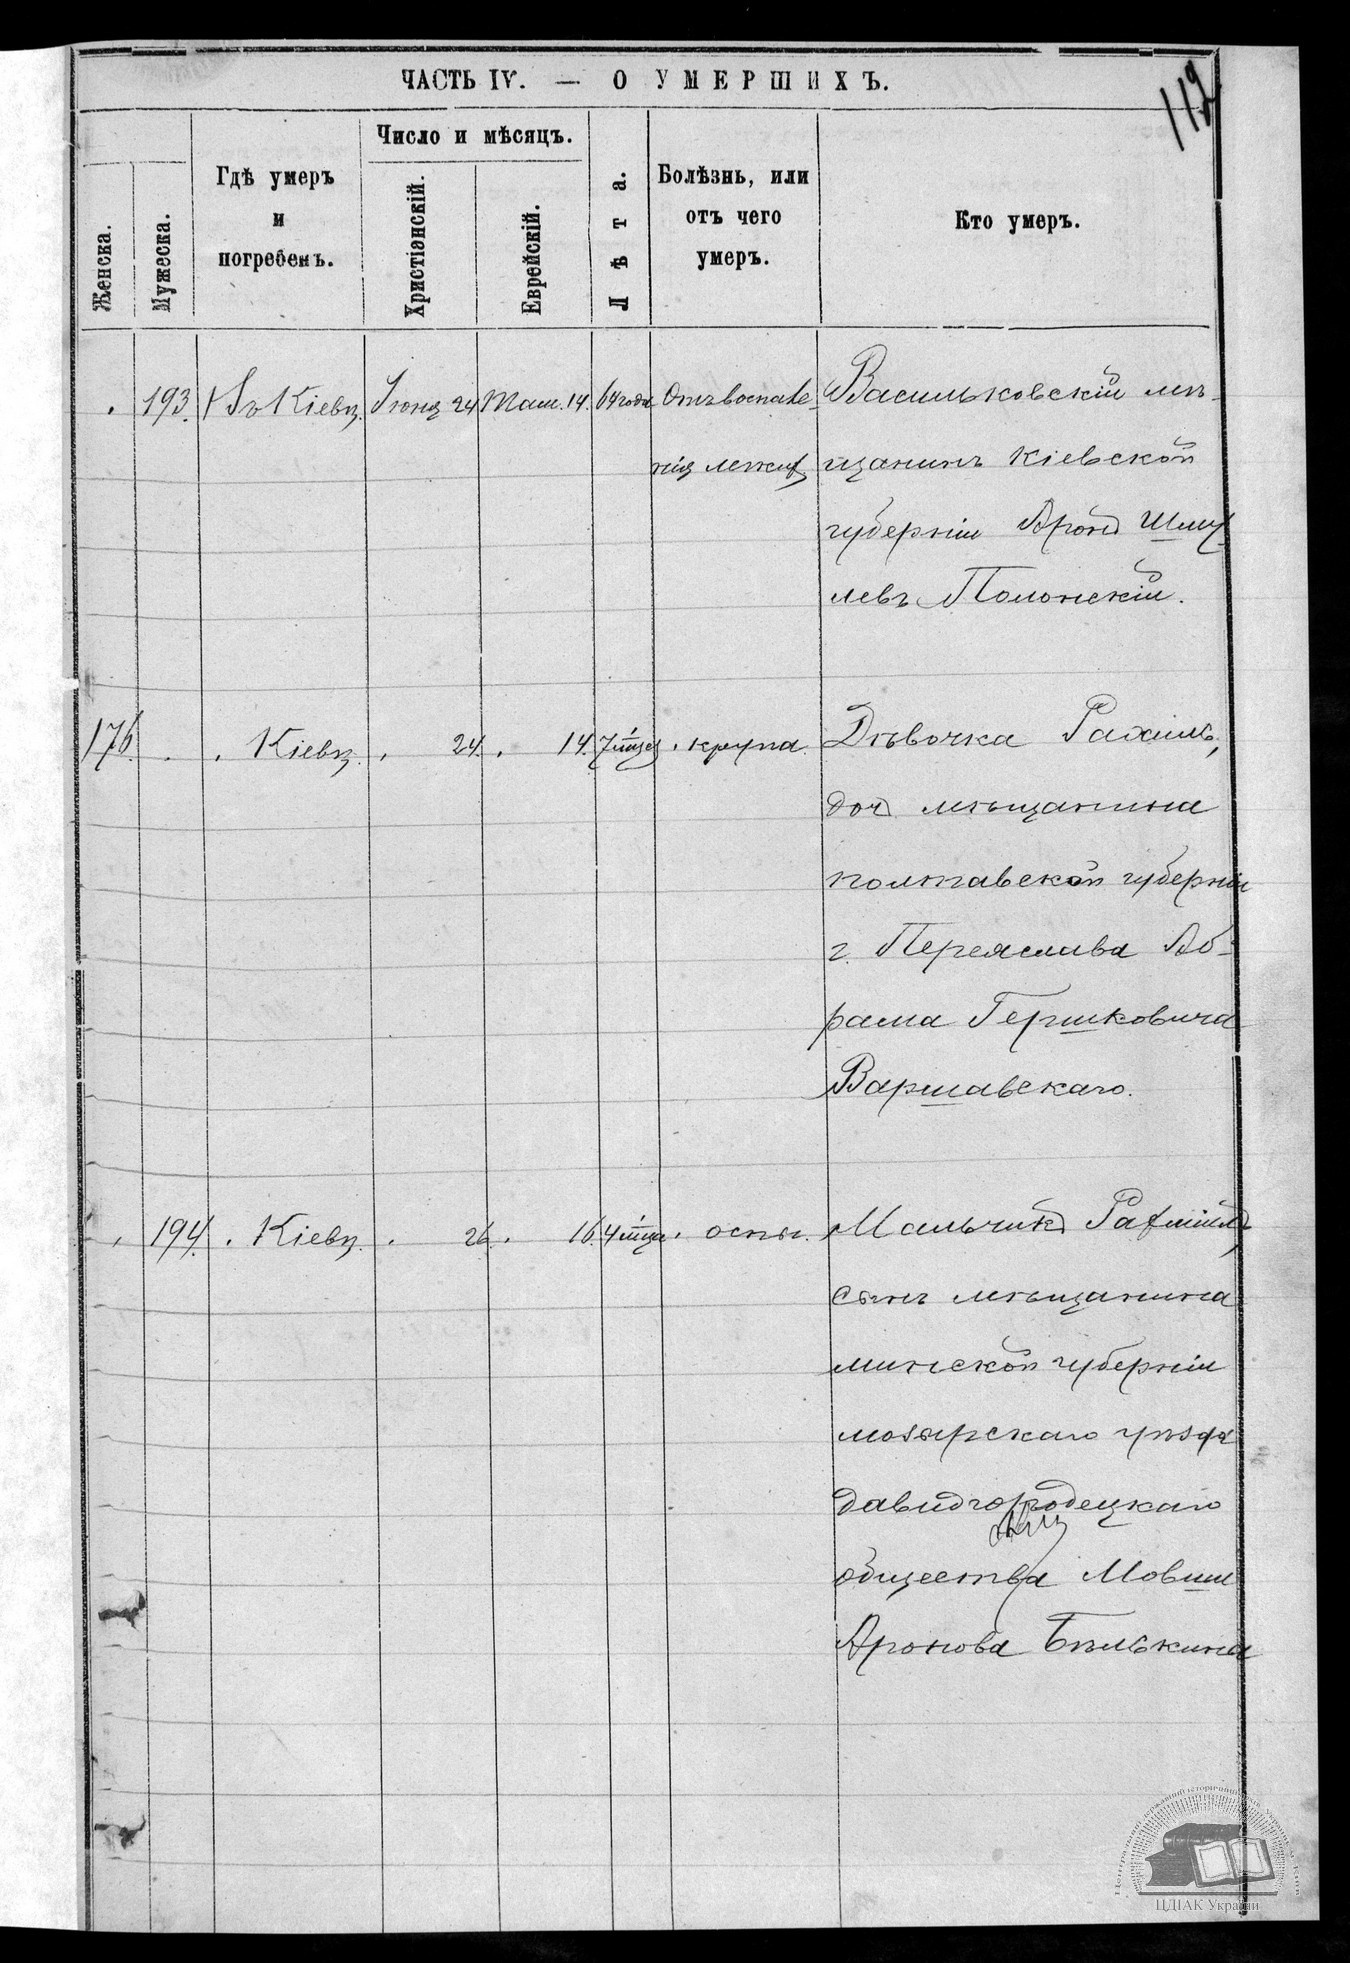 112
ЧАСТЬ IV. — О УМЕРШИХЪ.
Женска.
Мужеска.
Гдѣ умеръ
и
погребенъ.
Число и мѣсяцъ.
Христіянскій.
Еврейскій.
Лѣта.
Болѣзнь, или
отъ чего
умеръ.
Кто умеръ.
193. Въ Кіевѣ. Іюня 24 Там. 14. 64 года Отъ воспале- Васильковскій мѣ-
нія легких щанинъ кіевской
губерніи Аронъ Шму-
левъ Полонскій.
176. Кіевѣ. 24. 14. 7 мѣсц. крупа. Дѣвочка Рахиль,
доч мѣщанина
полтавской губерніи
г. Переяслава Аб-
рама Гершковича
Варшавскаго.
194. Кіевѣ. 26. 16. 4 мѣца. оспы. Мальчикъ
сынъ мѣщанина
минской губерніи
мозырскаго уѣзда
давидгородецкаго
общества Мовши
Аронова Бѣлькина
ЦДІАК України